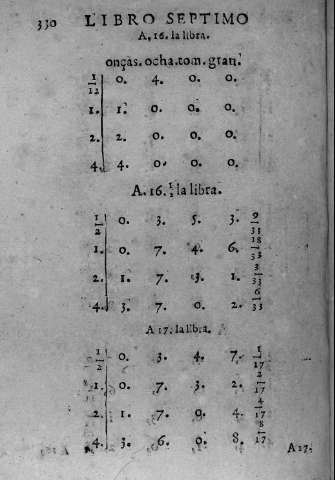 330 LIBRO SEPTIMO
A, 16. la libra.
onças. ocha. tom. gran.
1/12 0. 4. 0. 0.
1. 1. 0. 0. 0.
2. 2. 0. 0. 0.
4. 4. 0. 0. 0.
A. 16. 1/2 la libra.
1/2 0. 3. 5. 3. 9/33
1. 0. 7. 4. 6. 18/33
2. 1. 7. 3. 1. 3/33
4. 3. 7. 0. 2. 6/33
A 17. la libra.
1/2 0. 3. 4. 7. 1/17
1. 0. 7. 3. 2. 2/17
2. 1. 7. 0. 4. 4/17
4. 3. 6. 0. 8. 8/17
A 17.